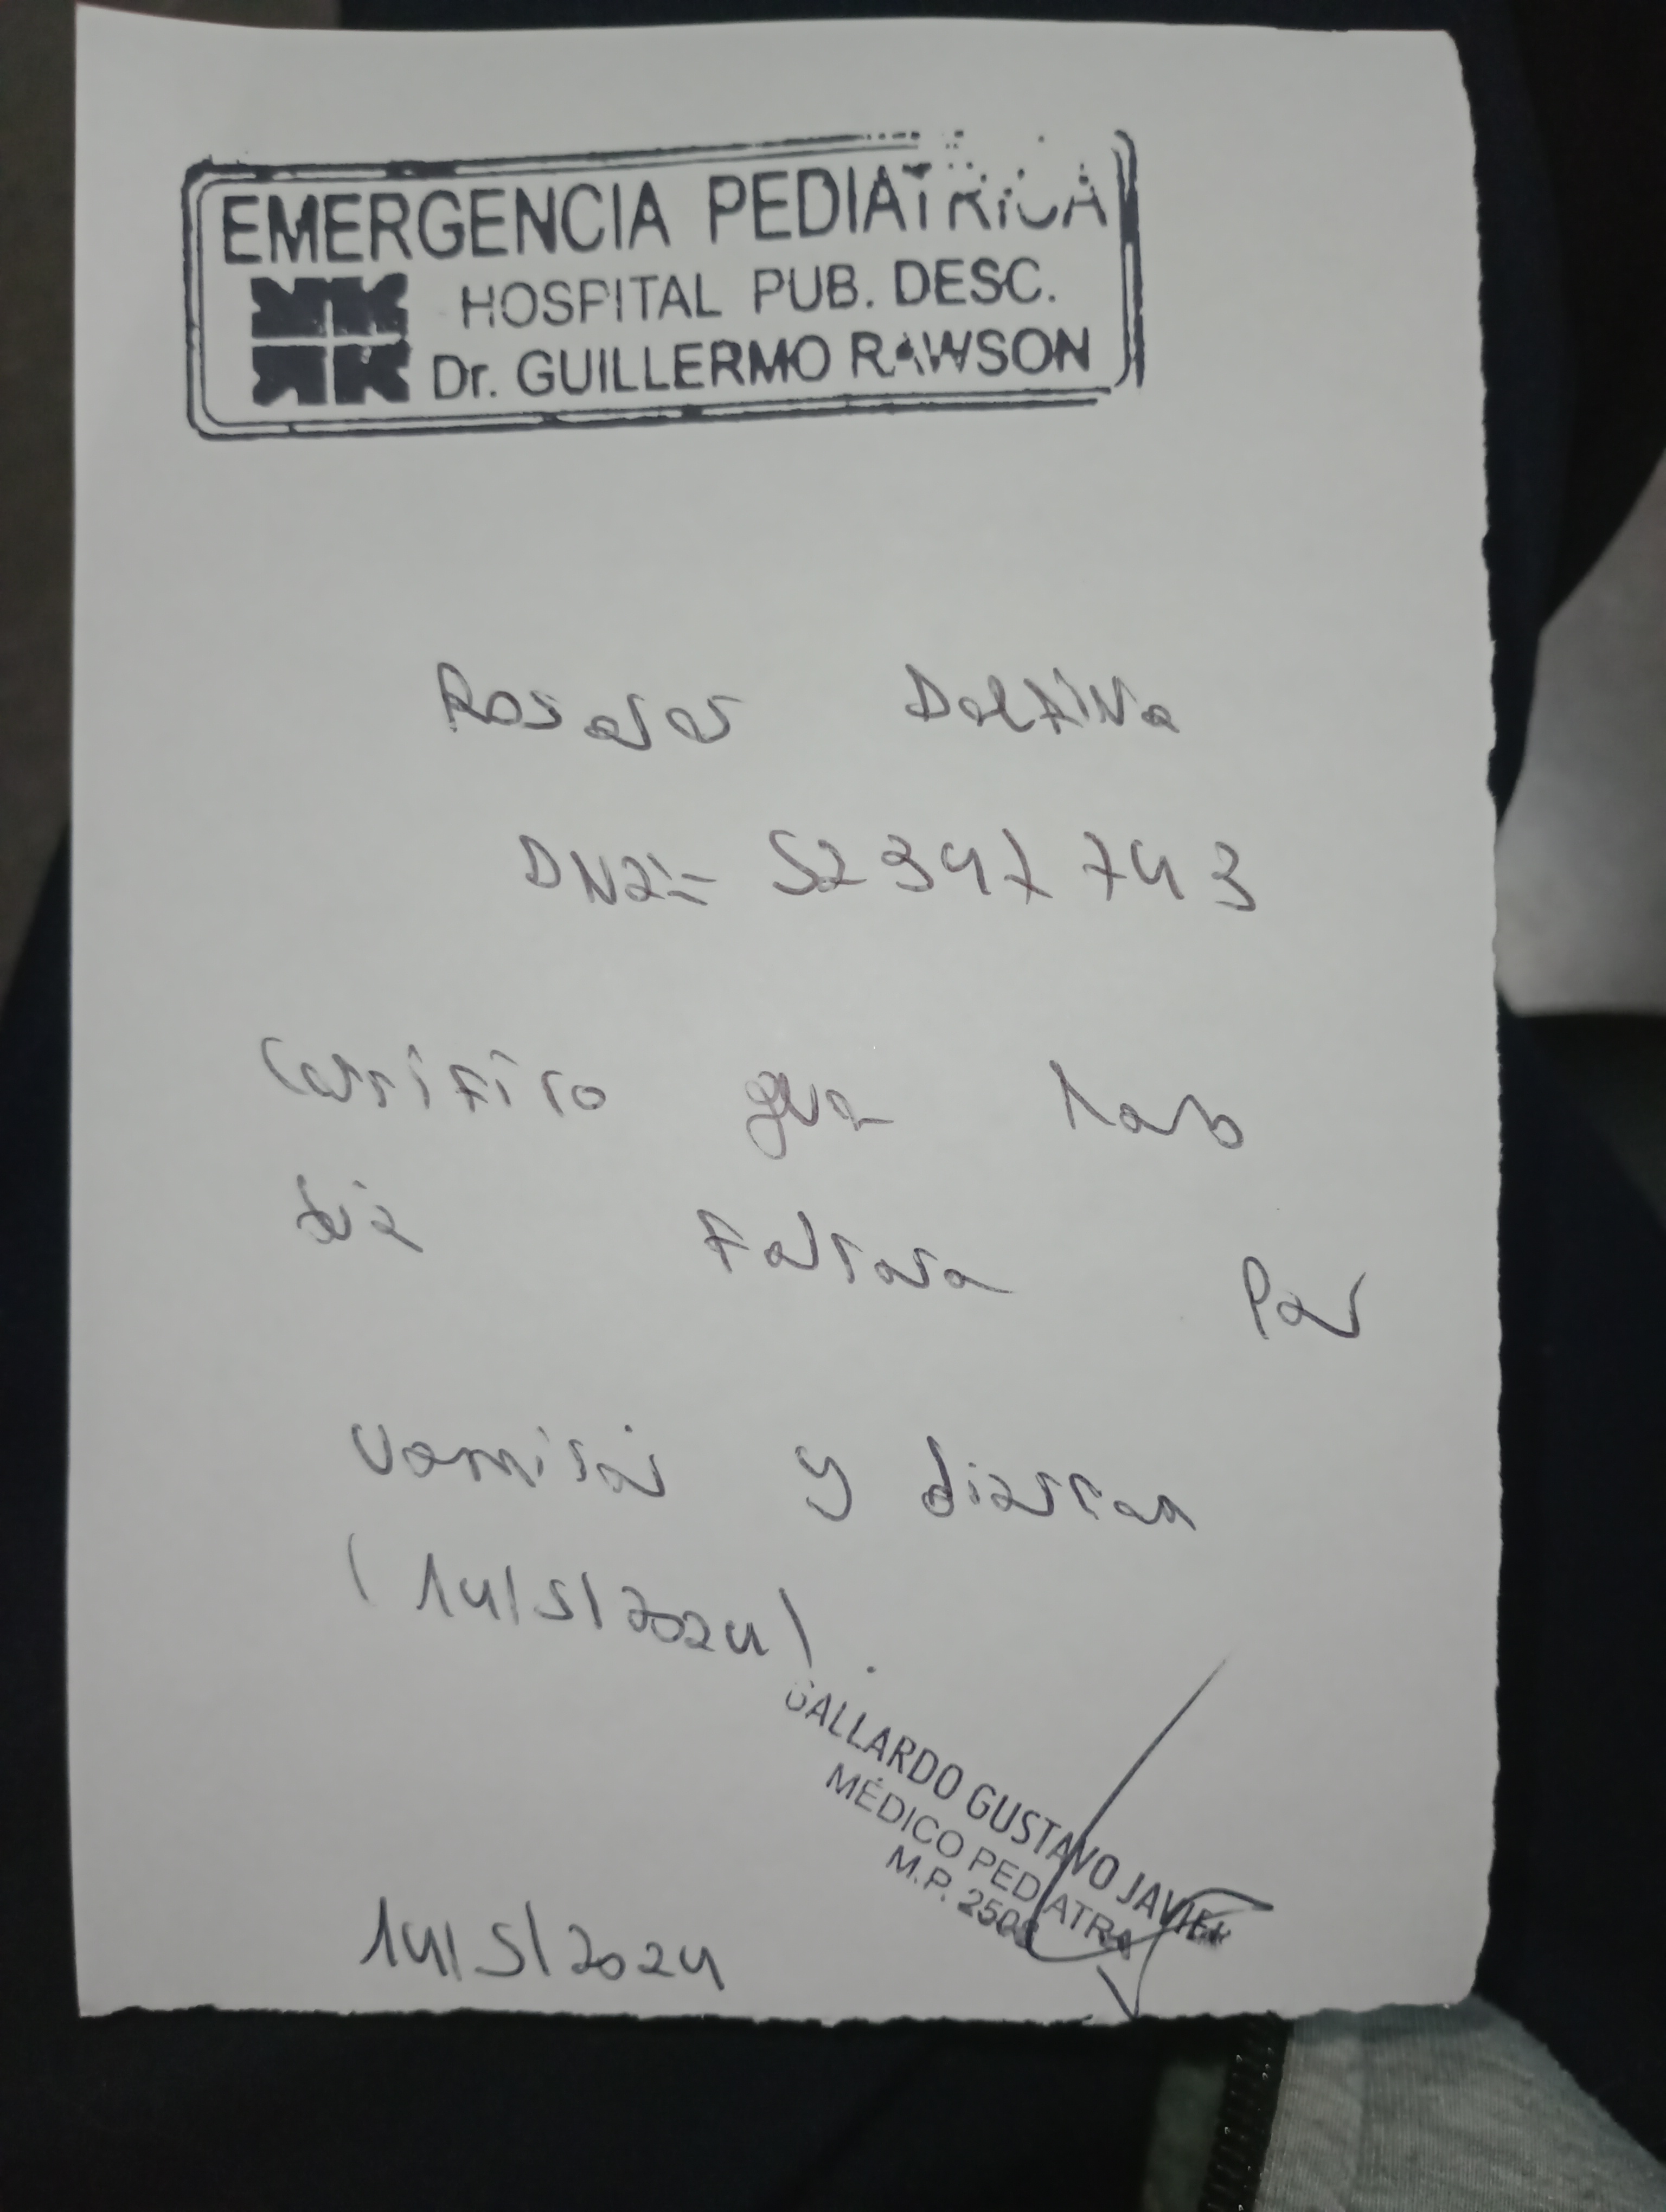 EMERGENCIA PEDIATRICA
HOSPITAL PUB. DESC.
Dr. GUILLERMO RAWSON
Delfina
DNI= 52347743
Certifico que
dia Faltara Por
vomitos y diarrea
(14/5/2024).
GALLARDO GUSTAVO JAVIER
MÉDICO PEDIATRA
M.P. 250
14/5/2024